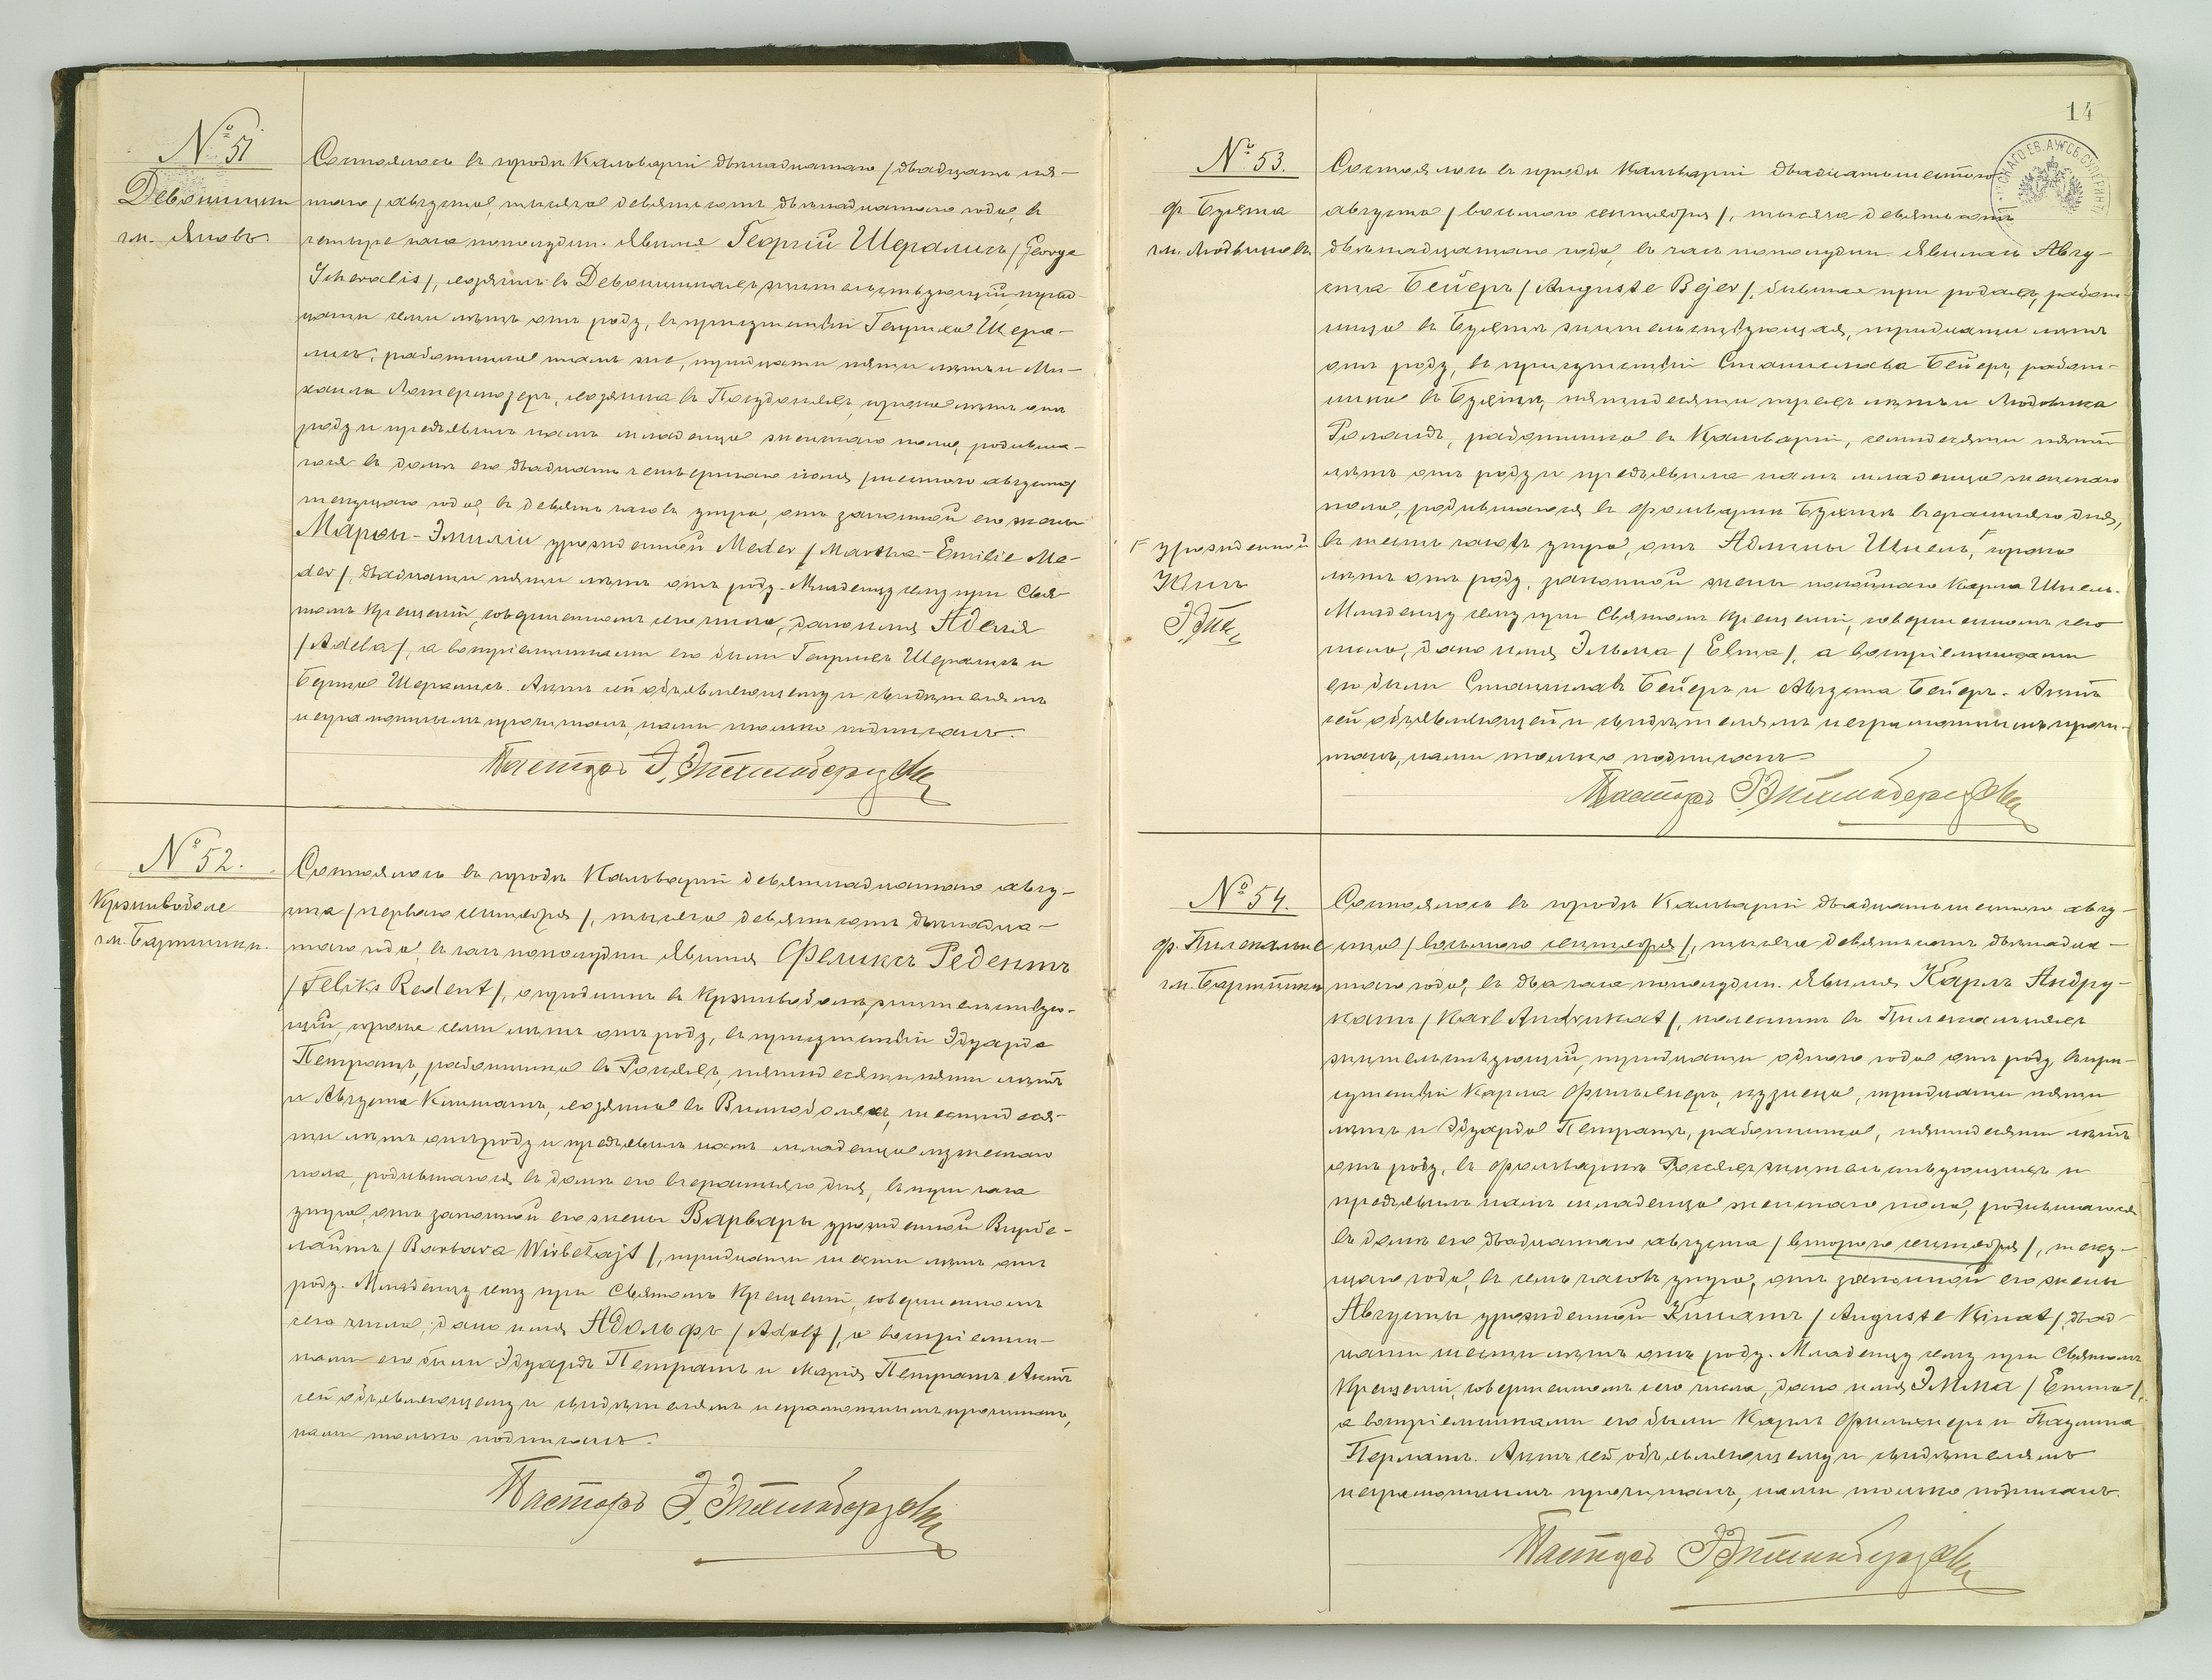 № 51
Девонишки
гм. Яновъ.
Состоялось въ городѣ Кальваріи двѣнадцатаго /двадцать пя-
таго/ августа, тысяча девятьсотъ двѣнадцатаго года, въ
четыре часа пополудни. Явился Георгій Шералисъ /George
Scheralis/, хозяинъ въ жительствующій, трид-
цати семи лѣтъ отъ роду, въ присутствіи Генриха Шера-
лисъ, работника тамъ же, тридцати пяти лѣтъ и Ми-
хаила хозяина въ сорока лѣтъ отъ
роду и предъявилъ намъ младенца женскаго пола, родивша-
гося въ домѣ его двадцать четвертаго іюля /шестого августа/
текущаго года, въ девять часовъ утра, отъ законной его жены
Марѳы-Эмиліи урожденной Meder /Martha-Emilie Me-
der/, двадцати пяти лѣтъ отъ роду. Младенцу сему при Свя-
томъ Крещеніи, совершенномъ сего числа, дано имя Аделя
/Adela/, а воспріемниками его были Генрихъ Шералисъ и
Берта Шералисъ. Актъ сей объявляющему и свидѣтелямъ
неграмотнымъ прочитанъ, нами только подписанъ.
Пасторъ
№ 52.
Крживодоле
гм. Бартники.
Состоялось въ городѣ Кальваріи девятнадцатаго авгу-
ста /перваго сентября/, тысяча девятьсотъ двѣнадца-
таго года, въ часъ пополудни. Явился Феликсъ Редентъ
/Feliks Redent/, огродникъ въ жительствую-
щій, сорока семи лѣтъ отъ роду, въ присутствіи Эдуарда
Петратъ, работника въ пятидесяти пяти лѣтъ
и Августа Кинатъ, хозяина въ шестидеся-
ти лѣтъ отъ роду и предъявилъ намъ младенца мужескаго
пола, родившагося въ домѣ его вчерашняго дня, въ три часа
утра, отъ законной его жены Варвары урожденной Вирбе-
лайтъ /Barbara Wirbełajt/, тридцати шести лѣтъ отъ
роду. Младенцу сему при Святомъ Крещеніи, совершенномъ
сего числа, дано имя Адольфъ /Adolf/, а воспріемни-
ками его были Эдуардъ Петратъ и Марія Петратъ. Актъ
сей объявляющему и свидѣтелямъ неграмотнымъ прочитанъ,
нами только подписанъ.
Пасторъ
14
№ 53.
ф. Букта
гм. Людвиновъ.
Состоялось въ городѣ Кальваріи двадцать шестого
августа /восьмого сентября/, тысяча девятьсотъ
двѣнадцатаго года, въ часъ пополудни. Явилась Авгу-
ста Бейеръ /Auguste Bejer/, бывшая при родахъ, работ-
ница въ Буктѣ жительствующая, тридцати лѣтъ
отъ роду, въ присутствіи Станислава Бейеръ, работ-
ника въ Буктѣ, пятидесяти трехъ лѣтъ и Людвика
Роландъ, работника въ Кальваріи, семидесяти пяти
лѣтъ отъ роду и предъявила намъ младенца женскаго
пола, родившагося въ фольваркѣ Буктѣ вчерашняго дня,
въ шесть часовъ утра, отъ Адлины Шнель, сорока
лѣтъ отъ роду, законной жены покойнаго Карла Шнель.
Младенцу сему при Святомъ Крещеніи, совершенномъ сего
числа, дано имя Эльма /Elma/, а воспріемниками
его были Станиславъ Бейеръ и Августа Бейеръ. Актъ
сей объявляющей и свидѣтелямъ неграмотнымъ прочи-
танъ, нами только подписанъ
Пасторъ
урожденной
№ 54.
гм. Бартники
Состоялось въ городѣ Кальваріи двадцать шестого авгу-
ста /восьмого сентября/, тысяча девятьсотъ двѣнадца-
таго года, въ два часа пополудни. Явился Карлъ Андру-
катъ /Karl Andrukat/, въ
жительствующій, тридцати одного года отъ роду, въ при-
сутствіи Карла кузнеца, тридцати пяти
лѣтъ и Эдуарда Петратъ, работника, пятидесяти лѣтъ
отъ роду, въ фольваркѣ жительствующихъ и
предъявилъ намъ младенца женскаго пола, родившагося
въ домѣ его двадцатаго августа /второго сентября/, теку-
щаго года, въ семь часовъ утра, отъ законной его жены
Августы урожденной Кинатъ /Auguste Kinat/, двад-
цати шести лѣтъ отъ роду. Младенцу сему при Святомъ
Крещеніи, совершенномъ сего числа, дано имя Эмма /Emma/,
а воспріемниками его были Карлъ и Паулина
Актъ сей объявляющему и свидѣтелямъ
неграмотнымъ прочитанъ, нами только подписанъ.
Пасторъ